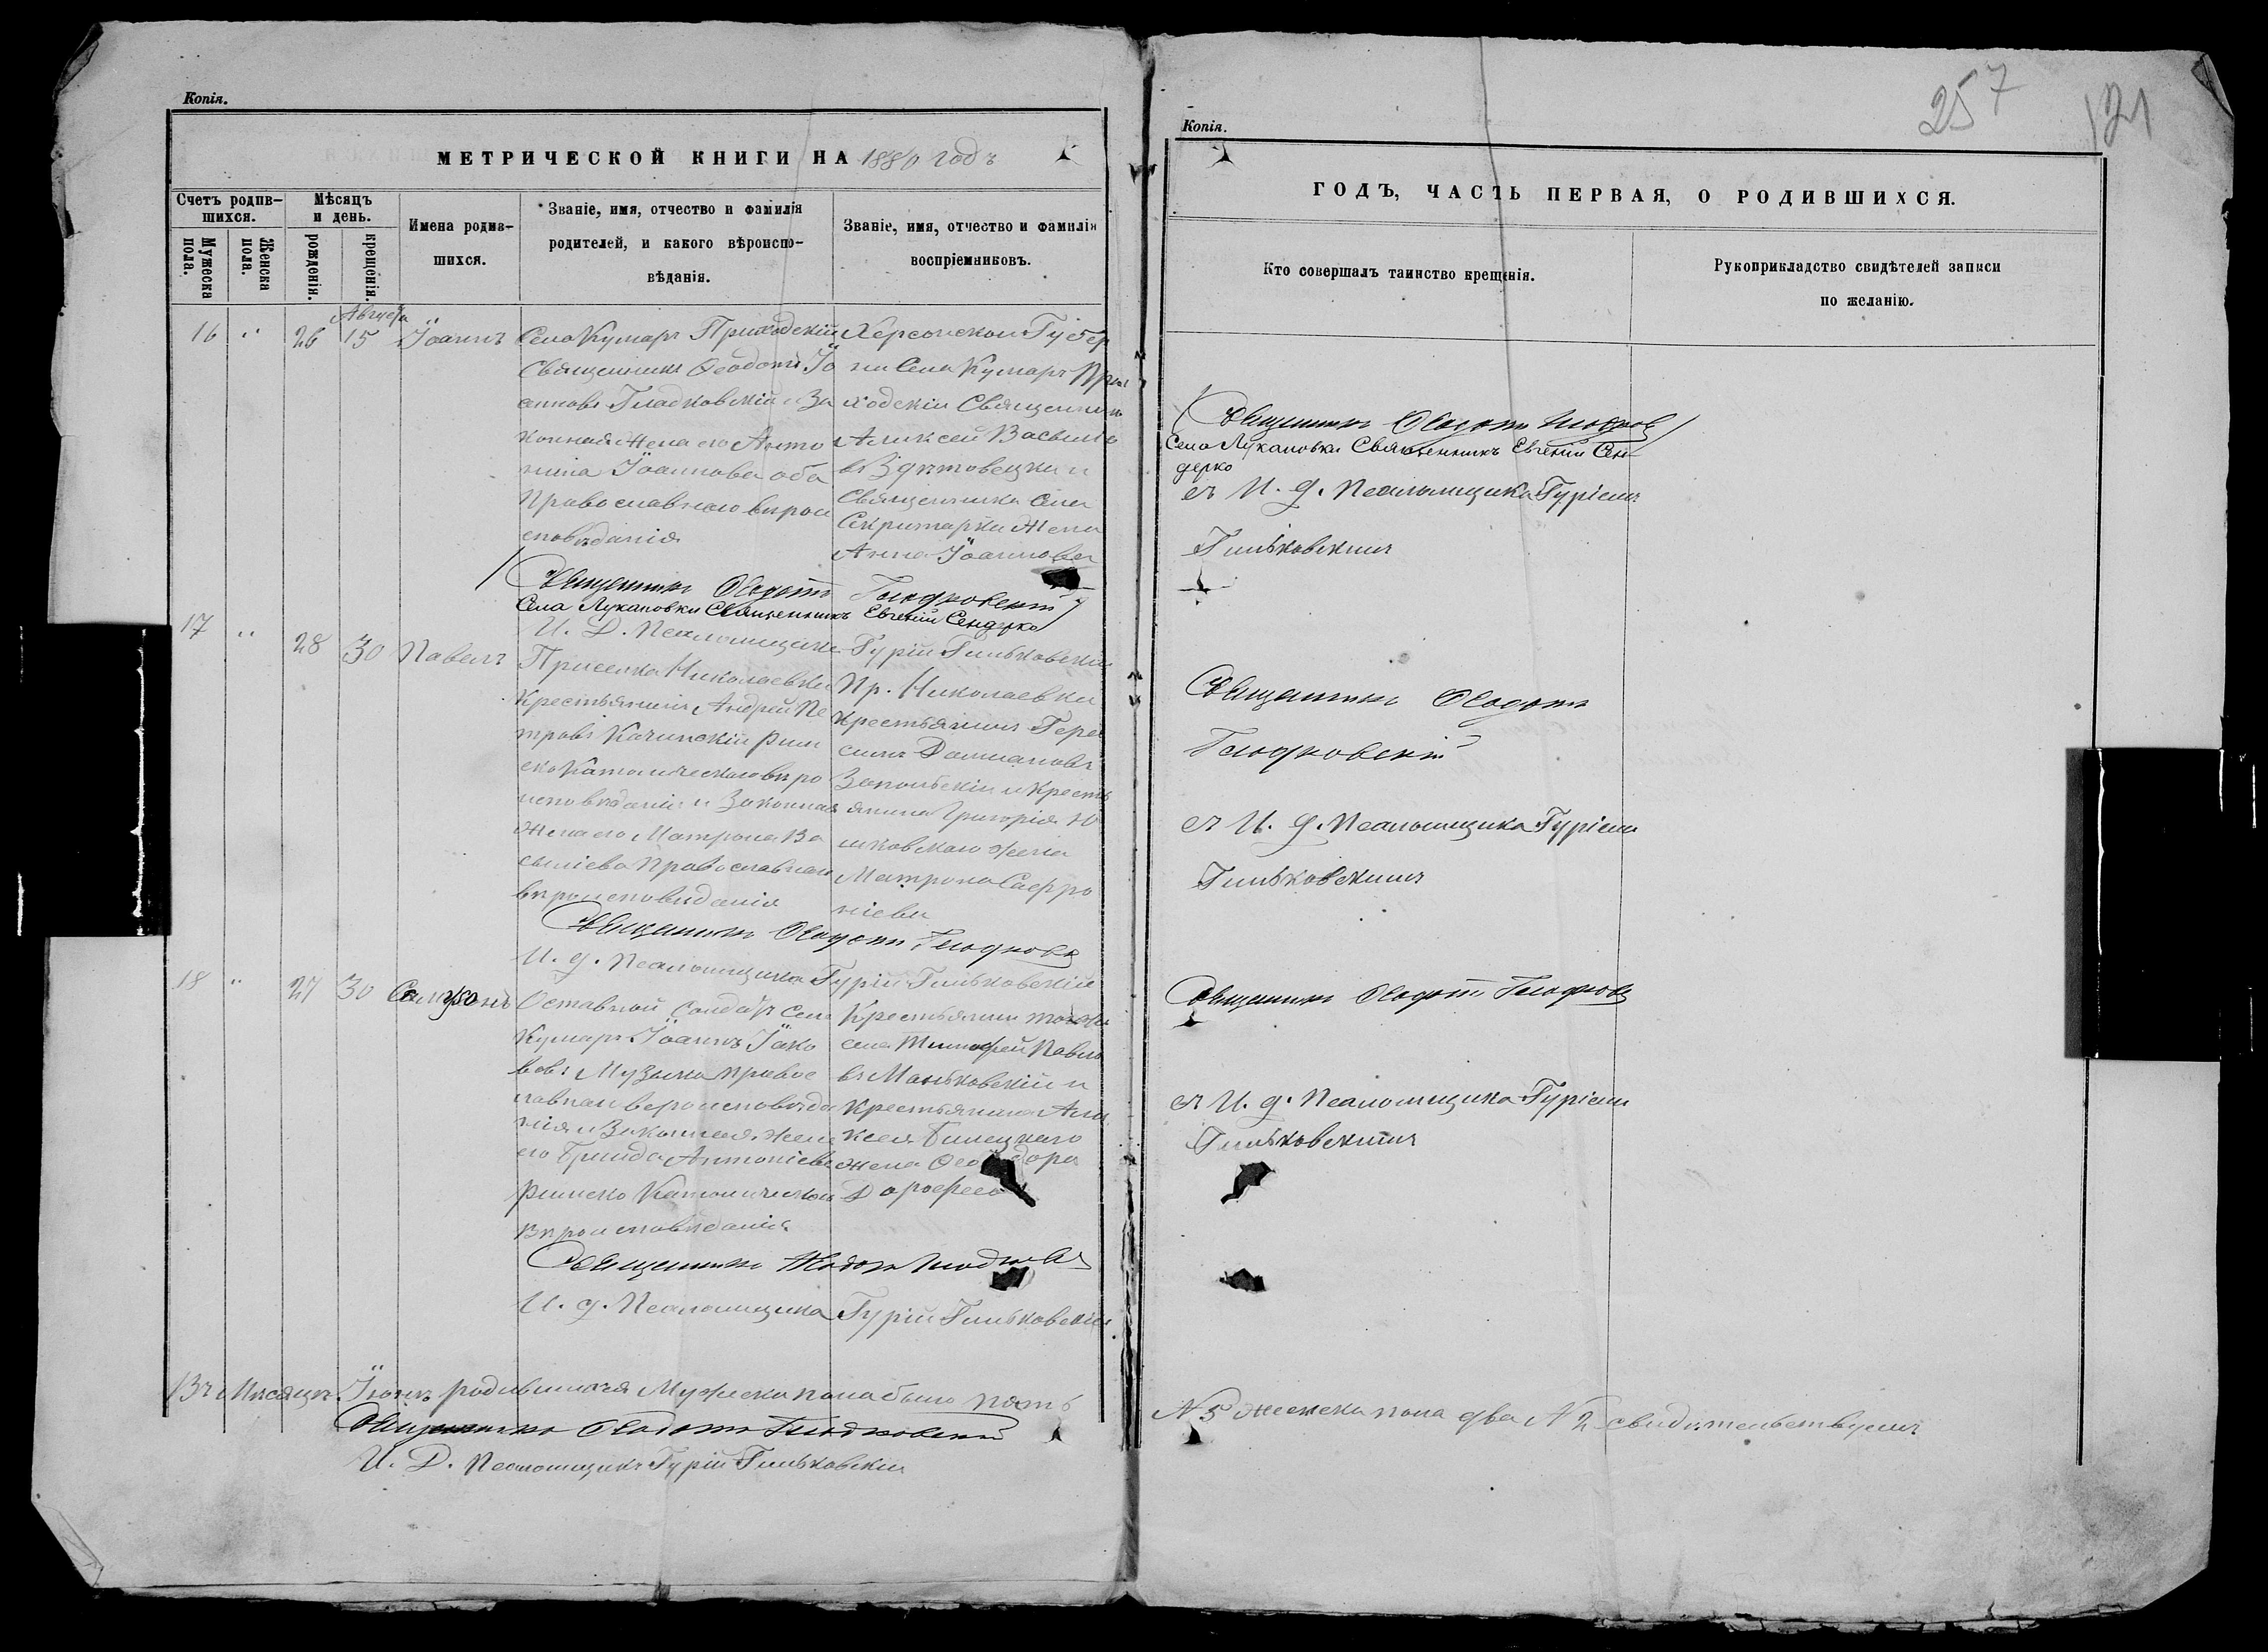 Копія.
МЕТРИЧЕСКОЙ КНИГИ НА 1880 годъ
Счетъ родив-
шихся.
Мужеска
пола.
Женска
пола.
Мѣсяцъ
и день.
рожденія.
крещенія.
Имена родив-
шихся.
Званіе, имя, отчество и фамилія
родителей, и какого вѣроиспо-
вѣданія.
Званіе, имя, отчество и фамилія
воспріемниковъ.
Августа
16 " 26 15 Іоаннъ
Села Кумаръ Приходскій
Священникъ Ѳеодотъ Іо
анновъ Гладковскій и За
конная жена его Анто
нина Іоаннова оба
Православнаго вѣрои
сповѣданія
Херсонской Губер
ніи Села Кумаръ При
ходскій Священникъ
Алексей Васильев
въ и
Священника Села
Секретарки жена
Анна Іоаннова
Священникъ Ѳеодотъ Гладковскій
Села Лукановки Священникъ Евгеній Сендерко
И. Д. Псаломщика Гурій Гиньковскій
17 " 28 30 Павелъ
Приселка Николаевки
Крестьянинъ Андрей Пе
тровъ Качинскій Рим
ско Католическаго вѣро
исповѣданія и Законная
жена его Матрона Ва
сильева Православнаго
вѣроисповѣданія
Пр. Николаевки
Крестьянинъ Гера
симъ Даміановъ
Запольскій и Кресть
янина Григорія Ю
шковскаго жена
Матрона Сафро
ніева
Священникъ Ѳеодотъ Гладковск
И. д. Псаломщика Гурій Гиньковскій
18 " 27 30 Сампсонъ
Оставной Солдатъ Села
Кумаръ Іоаннъ Іако
вовъ Музыка Правос
лавнаго вероисповѣда
нія и Законная жена
его Антоніева
Римско Католическаго
Вѣроисповѣданія
Крестьянинъ тогоже
села Тимофей Павло
въ Маньковскій и
Крестьянина Але
ксея Билецкаго
жена Ѳеодора
Дорофее
Священникъ Ѳеодотъ Гладковск
И. д. Псаломщика Гурій Гиньковскій
Въ Мѣсяцѣ Іюнѣ родившихся Мужеска пола было пять
Священникъ Ѳеодотъ Гладковскій
И. Д. Псаломщикъ Гурій Гиньковскій
257
121
Копія.
ГОДЪ, ЧАСТЬ ПЕРВАЯ, О РОДИВШИХСЯ.
Кто совершалъ таинство крещенія.
Рукоприкладство свидѣтелей записи
по желанію.
Священникъ Ѳеодотъ Гладков
Села Лукановки Священникъ Евгеній Сен-
дерко
съ И. д. Псаломщика Гуріемъ
Гиньковскимъ
Священникъ Ѳеодотъ
Гладковскій
съ И. д. Псаломщика Гуріемъ
Гиньковскимъ
Священникъ Ѳеодотъ Гладков
съ И. д. Псаломщика Гуріемъ
Гиньковскимъ
№ 5 женска пола два № 2 свидѣтельствуемъ